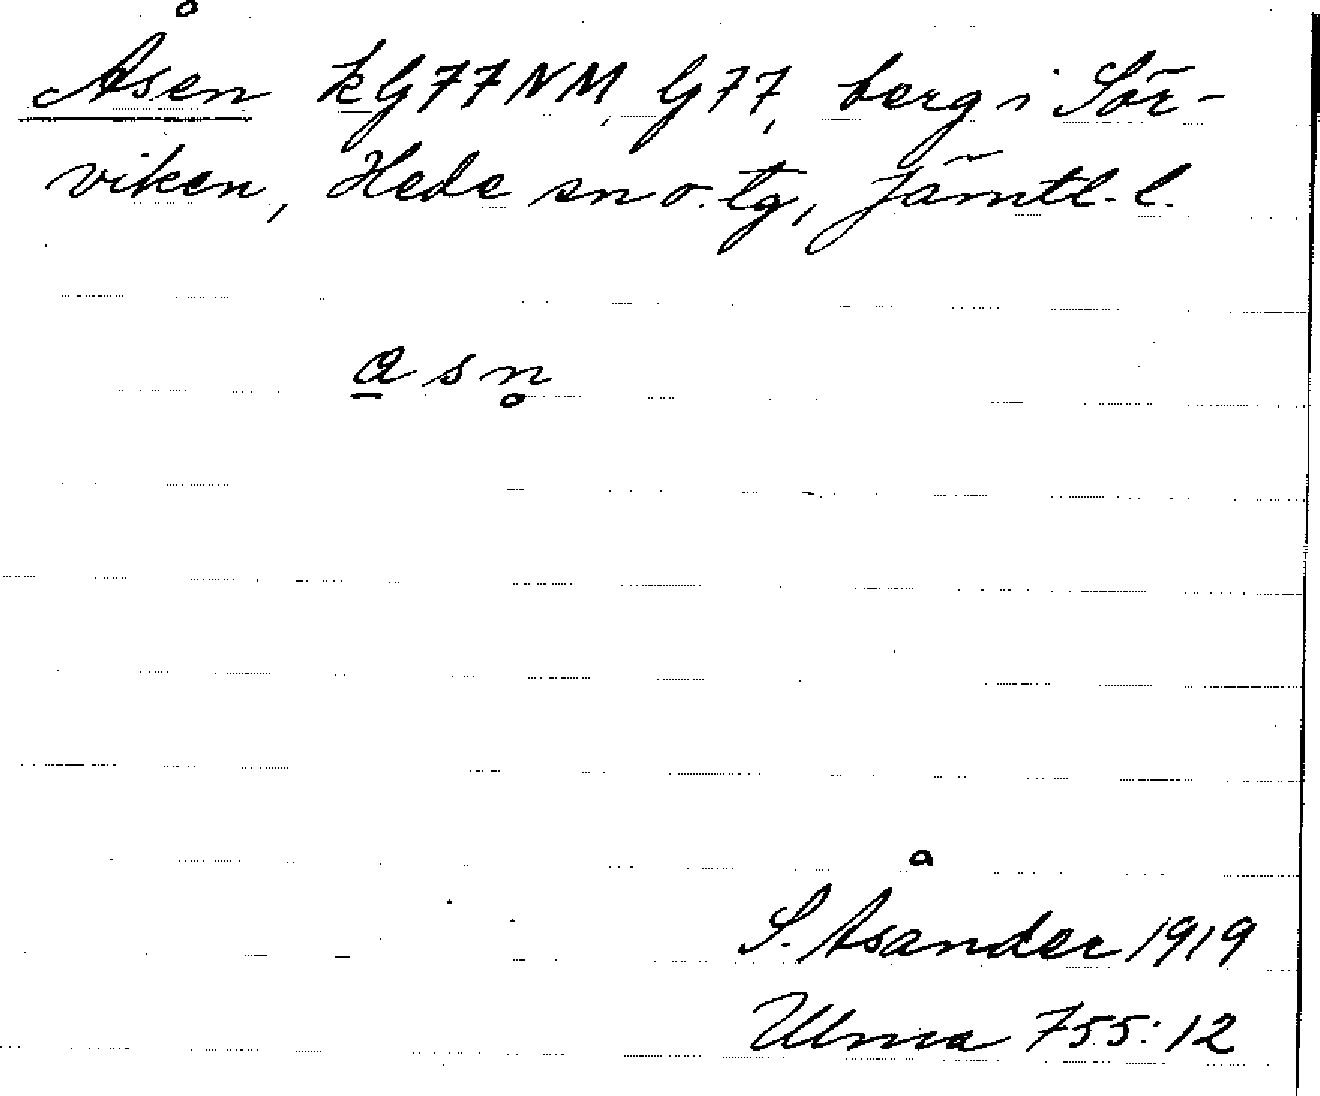 Åsen kG77NM, G77, berg i Sör-
viken, Hede sn o. tg, Jämtl. l.
a̲ s n̥
S. Åsander 1919
Ulma 755:12